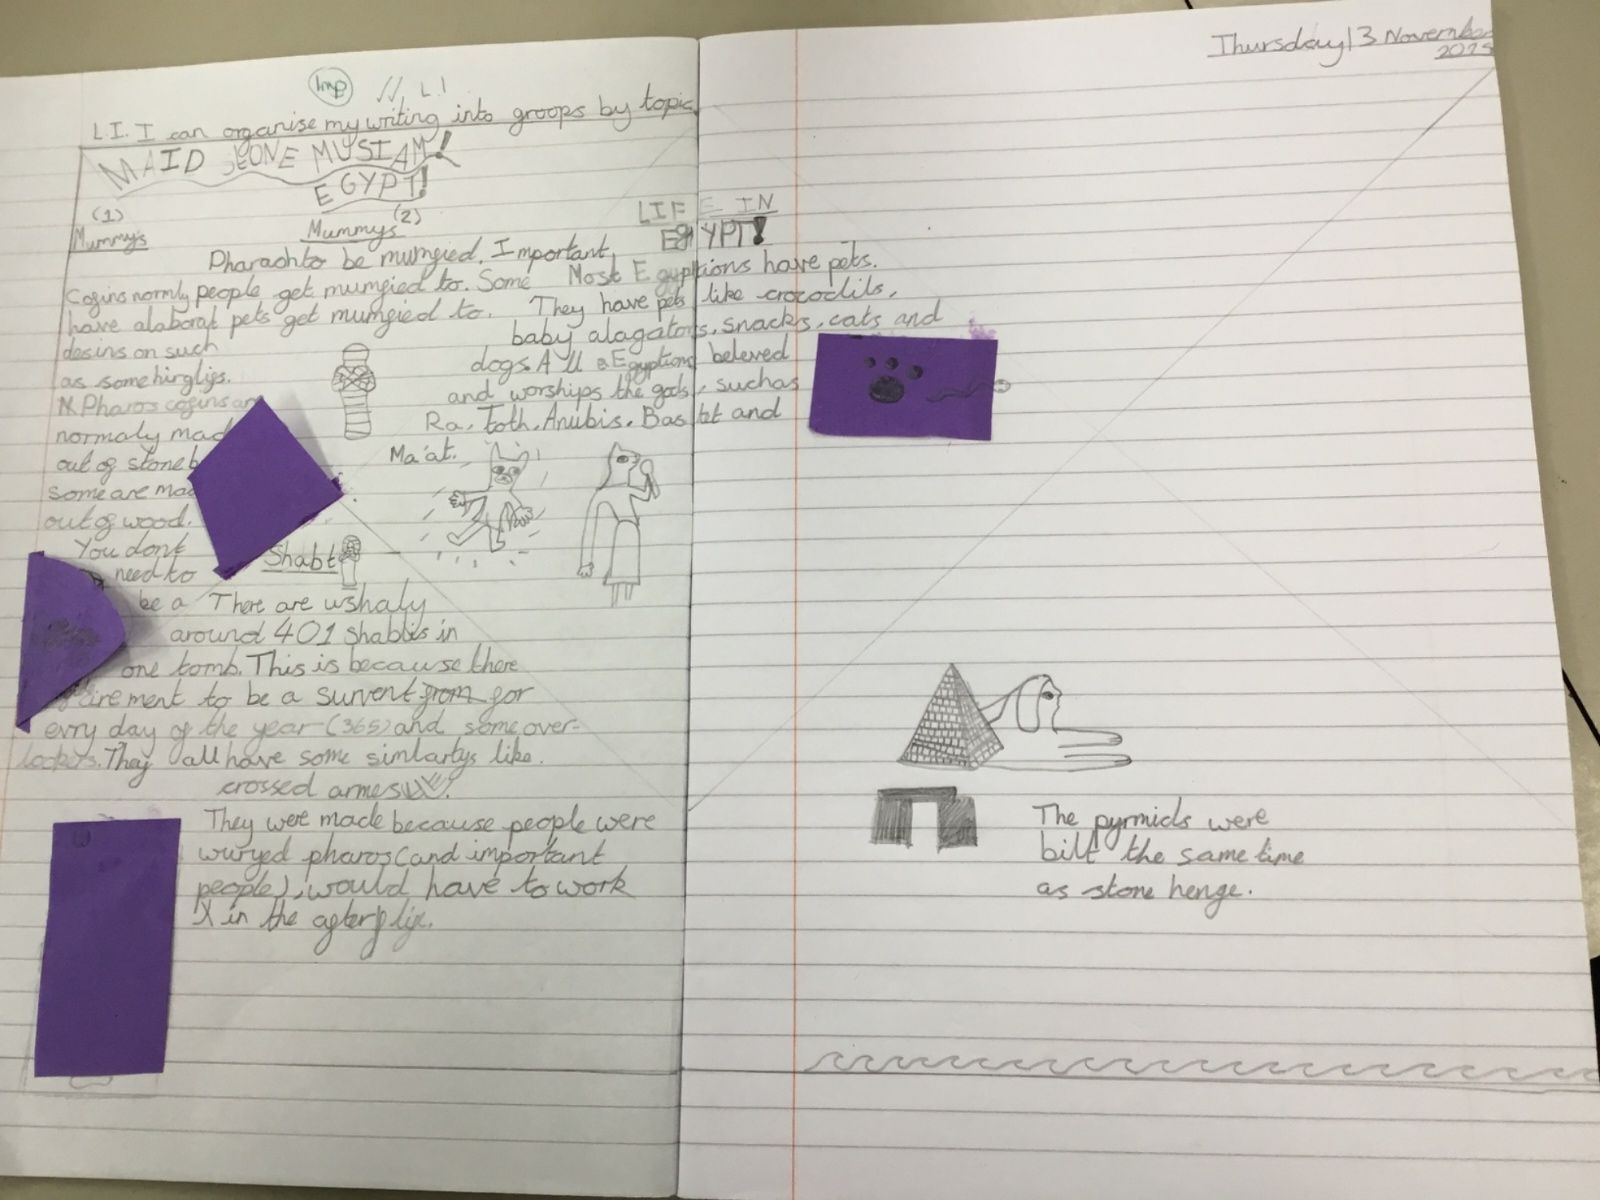 Thursday 13 November
2025
Imp
L.I
L.I. I can organise my writing into groops by topic
MAID STONE MUSIAM!
EGYPT!
(1)
Mummy's
Cofins normly
have alaborat
desins on such
as some hirglifs.
Pharos cofins are
normaly mad
out of stone b
some are mad
out of wood.
You dont
need to
be a
Mummys (2)
Pharaoh to be mumfied. Important
people get mumfied to. Some
pets get mumfied to.
LIFE IN
EgYPT!
Most Egyptions have pets.
They have pets like crocodils,
baby alagators, snacks, cats and
dogs. All Egyptions beleved
and worships the gods, such as
Ra, Toth, Anubis, Bastet and
Ma'at.
Shabti
There are ushaly
around 401 shabtis in
one tomb. This is because there
irement to be a survent from for
evry day of the year (365) and some over-
lookers. They all have some simlartys like.
crossed armes
They were made because people were
wuryed pharos (and important
people), would have to work
in the after life.
The pyrmids were
bilt the same time
as stone henge.